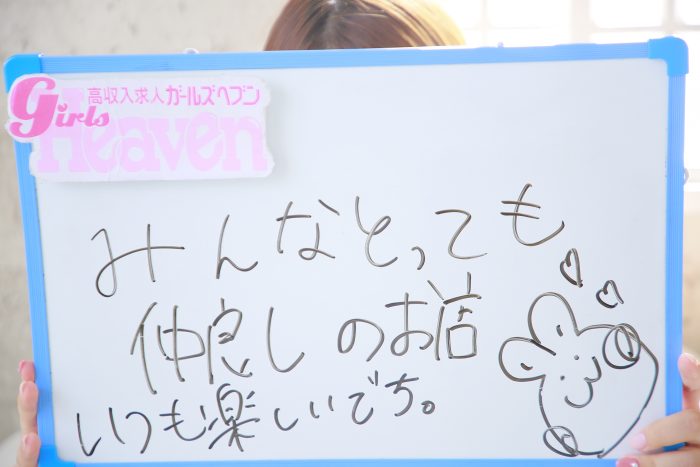 高収入求人ガールズヘブン
Girls
Heaven
みんなとっても
仲良しのお店
いつも楽しいでち。